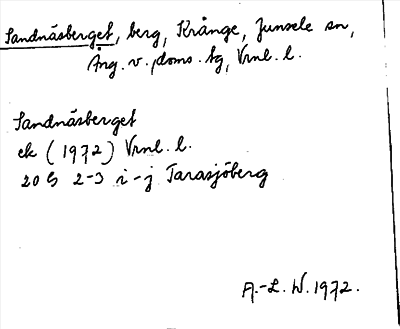 Sandnäsberget, berg, Krånge, Junsele sn,
Ång. v. doms. tg, Vrnl. l.
Sandnäsberget
ek (1972) Vrnl. l.
20 G 2-3 i-j Tarasjöberg
A.-L. W. 1972.